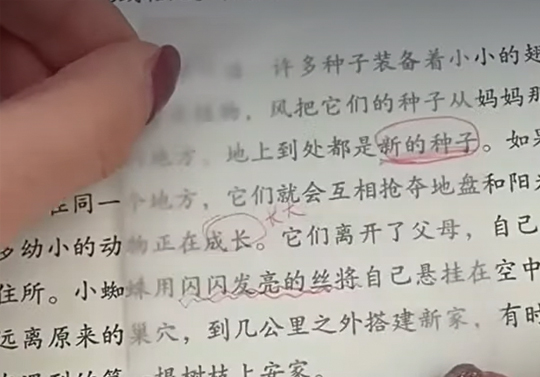 许多种子装备着小小的翅
物，风把它们的种子从妈妈那
地方，地上到处都是新的种子。如果
在同一个地方，它们就会互相抢夺地盘和阳
多幼小的动物正在成长。它们离开了父母，自己
长大
住所。小蜘蛛用闪闪发亮的丝将自己悬挂在空中
远离原来的巢穴，到几公里之外搭建新家，有时
根树枝上安家。